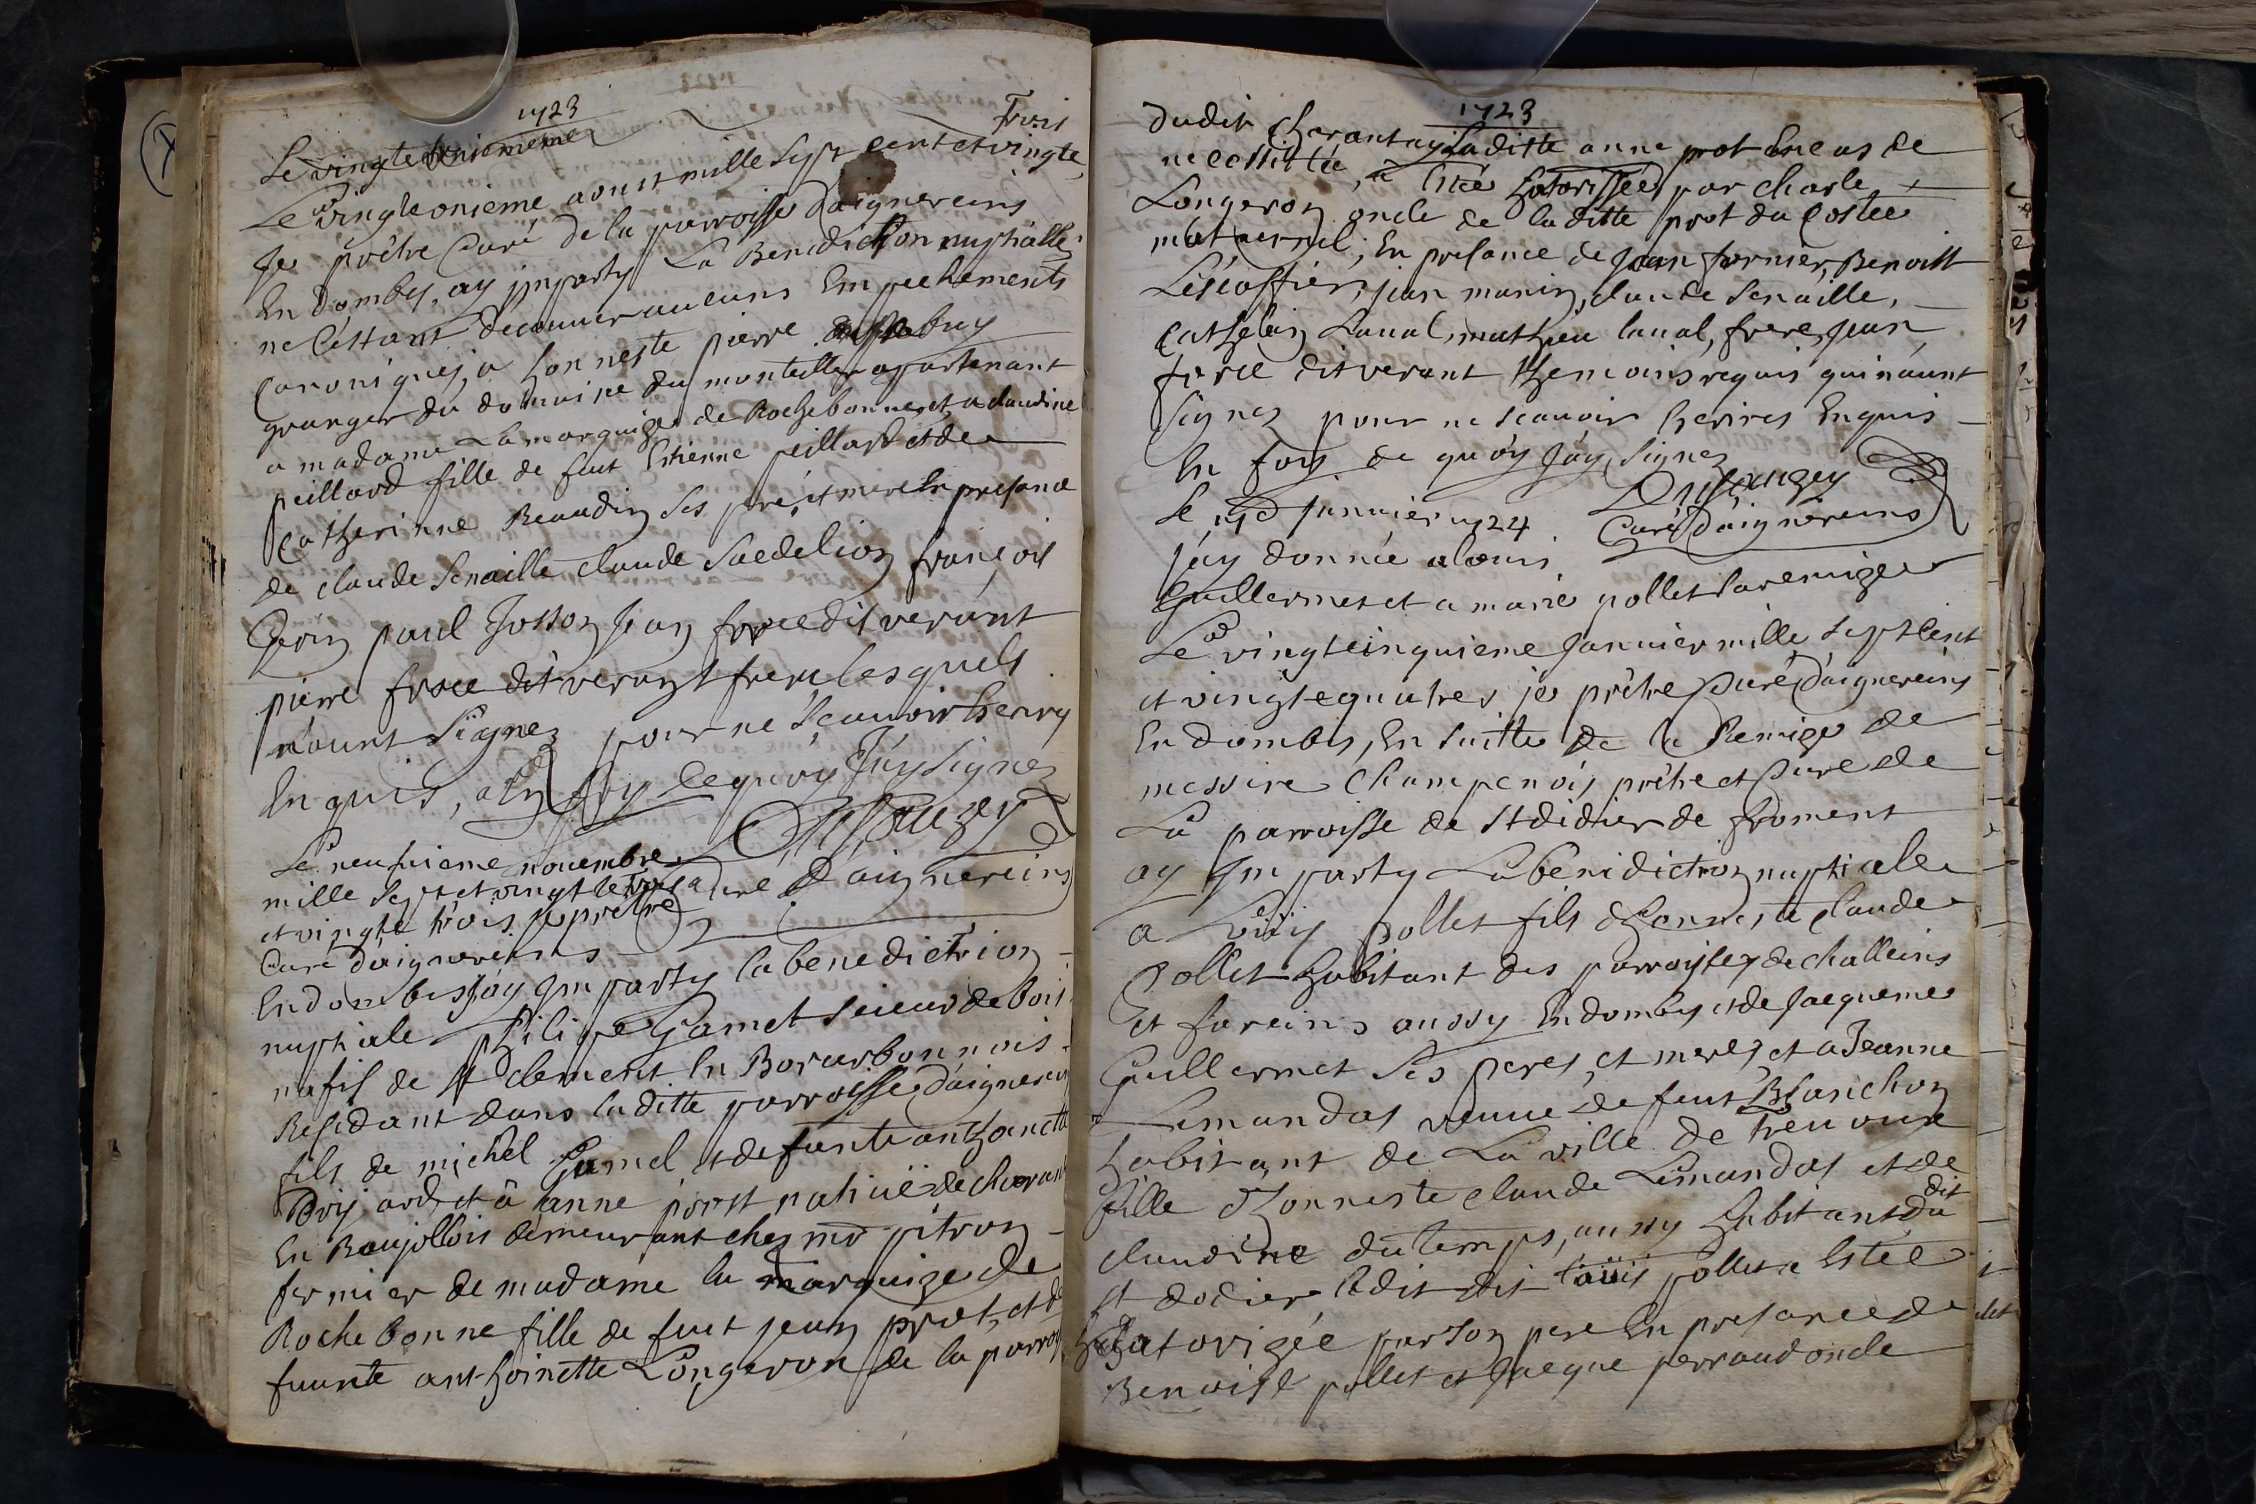 1723
Le vingte
Trois
Le vingteonieme aoust mille sept cent et vingte
Je prêtre Curé de la parroisse daignereins
En dombes, ay jmparty La Benediction nuptialle
ne sestant decouuer aucuns Empechements
Canoniques, a honneste pierre buy
granger du domaine du montellier apartenant
a madame La marquize de Rochebonne, et a claudine
peillard fille de feut Estienne peillard et de
Catherinne Beaudin ses pere, et mere En presance
de claude Senaille claude Saedelion françois
Gerin paul Josson Jean froce dit verant
pierre froce dit verant frere lesquels
n'aount signez pour ne sçauoir Escrire
Enquis, a En foy de quoy J'ay signez
Dusauzey
Curé Daignereins
Le neufuieme nouembre
mille sept et vingt
et vingte trois, Je prêtre
Curé daignereins
En dombes J'ay Jmparty la benediction
nuptiale philipe Gamet sieur de bois
nafis de St clement En Borurbonnois
Residant dans la ditte parroisse daignereins
fils de michel Gamel et defunte anthoinette
et â anne prost natiuë de charant
En Baujollois demeurant ches mr pitron
fermier de madame la marquize de
Rochebonne fille de feut jean prot, et de
funte anthoinette Longeron de la parroi
1723
dudit charantay Laditte anne prot En cas de
necessittée, a Estée hatorissée par charle
Longeron oncle de laditte prot du Costée
maternel; En presance de Jean fornier, Benoist
Lescoffier, jean manin, claude Senaille,
Cathelin Laual, mathieu laual, frere, Jean
force dit verant themoins requis qui n'aunt
signez pour ne scauoir Escrires Enquis
En foy de quoy J'ay signez
Dusauzey
Curé Daignereins
Le 19 Januier 1724
J'ay donnée a louis
Guillermet et a marie pollet la remize
Le vingtcinquieme Januier mille sept cent
et vingtequatres je prêtre Curé daignereins
En dombes, En suitte de la Remize de
messire Champenois prêtre et Curé de
La parroisse de St didier de froment
ay Jmparty La benidiction nuptiale
a Loüis pollet fils dhonneste claude
Pollet habitant des parroisses de challeins
Et fareins aussy En dombes et de Jacqueme
Guillermet ses peres, et meres et a Jeanne
Limandas veuue de feut Blanchon
habitant de La ville de Treuoux
fille dhonneste claude Limandas et de
claudine dutemps, aussy habitans du
dit
St dodier ledit dit loüis pollet a Estée
hatorizée par son pere En presance de
Benoist pollet et Jacque perraud oncle